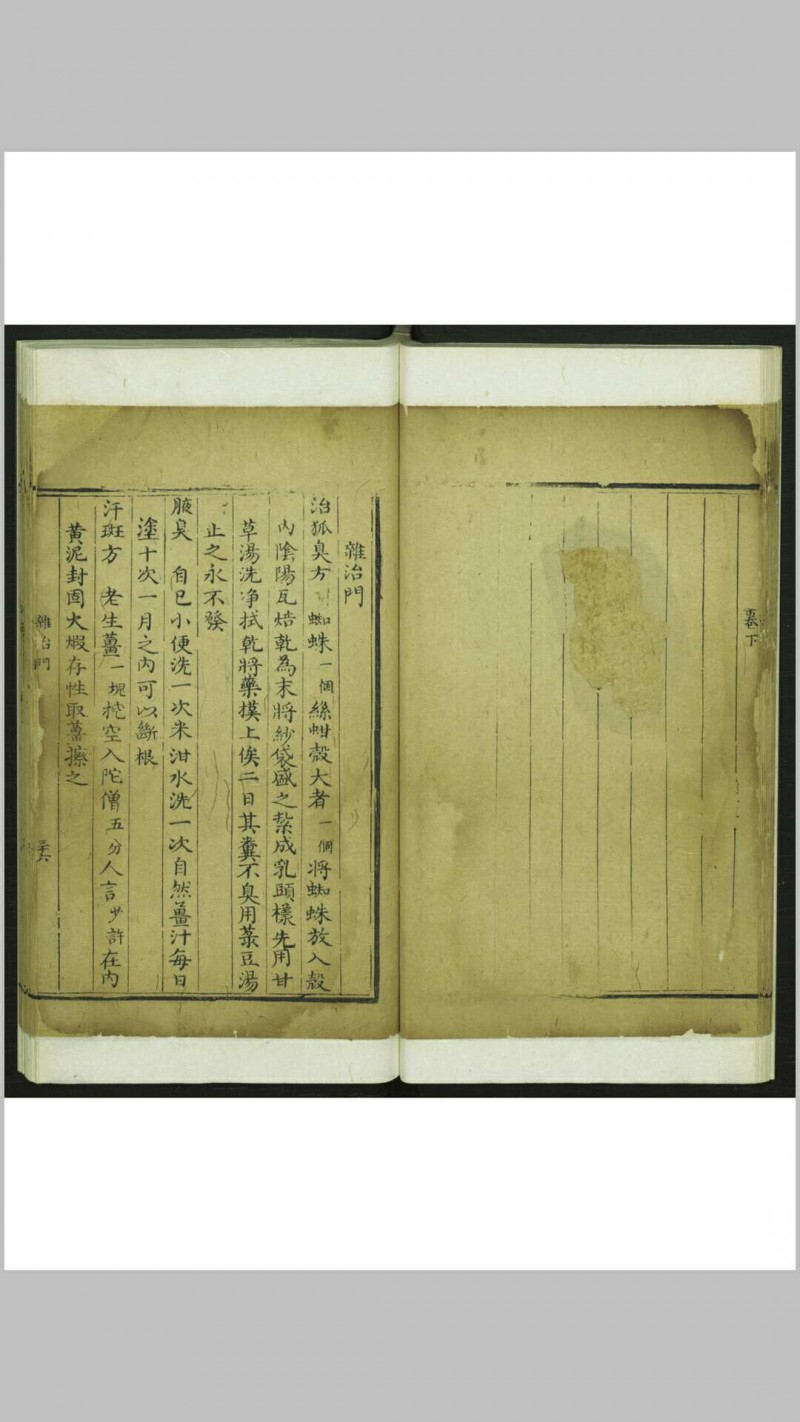 下
雜治門
治狐臭方 蜘蛛一個絲蚶殼大者一個將蜘蛛放入殼
內陰陽瓦焙乾為末將紗袋盛之紮成乳頭樣先用甘
草湯洗净拭乾將藥摸上俟二日其糞不臭用菉豆湯
止之永不發
腋臭 自己小便洗一次米泔水洗一次自然薑汁每日
塗十次一月之內可以斷根
汗斑方 老生薑一塊挖空入陀僧五分人言少許在內
黃泥封固火煆存性取薑擦之
雜治門